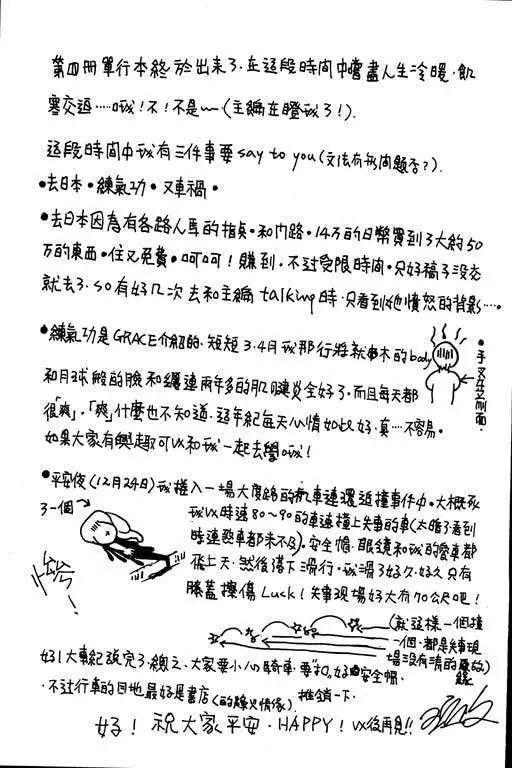 第四冊單行本終於出來了.在這段時間中嚐盡人生冷暖.飢
寒交迫……哦!不!不是~~(主編在瞪我了!).
這段時間中我有三件事要 say to you(文法有無問題否?).
•去日本•練氣功•又車禍•
•去日本因為有各路人馬的指點.和門路.14万的日幣買到了大約50
万的東西.住又免費.呵呵!賺到.不过受限時間.只好稿子沒交
就去了.so有好几次去和主編talking時.只看到她憤怒的背影…..
•練氣功是GRACE介紹的.短短3.4月我那行將就木的body
和月球般的臉和纏連兩年多的肌腱炎全好了.而且每天都
很「爽」.「爽」什麼也不知道.這年紀每天心情如此好.真…不容易.
如果大家有興趣可以和我一起去學哦!
•手叉在前面.
•平安夜(12月24日)我捲入一場大度路的汽車連環追撞事件中.大概死
了一個
我以時速80~90的車速撞上失事的車(太晚了看到
時連煞車都來不及).安全帽.眼鏡和我的愛車都
飛上天.然後落下滑行.我滑了好久.好久只有
膝蓋擦傷Luck!失事現場好大有70公尺吧!
(就這樣一個撞
一個.都是失事現
場沒有清的原故)
好!大事紀說完了.總之.大家要小心騎車.要"扣"好安全帽.
.不过行車的目地最好是書店(的緣故情緣)推銷一下.
好!祝大家平安.HAPPY!以後再見!!